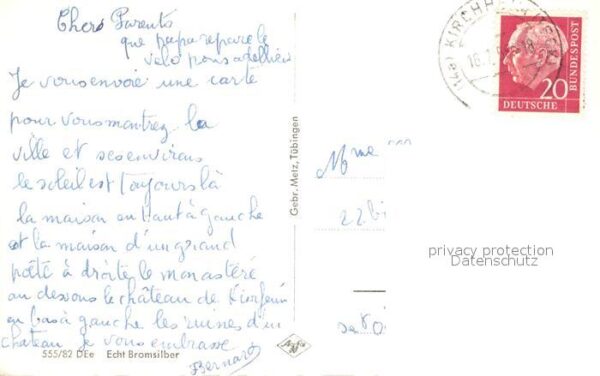 Chers Parents
que papa repare le
velo pous atellier
Je vous envoie une carte
pour vous montrez la
ville et ses environs
le soleil est Toujours là
la maison en haut à gauche
et la maison d'un grand
poëte à droite le monastéré
au dessous le château de
en bas à gauche les ruines d'un
chateau je vous embrasse
Bernard
555/82 DEe Echt Bromsilber
Gebr. Metz, Tübingen
Agfa
KIRCHHEIM
DEUTSCHE
20
BUNDESPOST
Mme
22 bi
privacy protection
Datenschutz